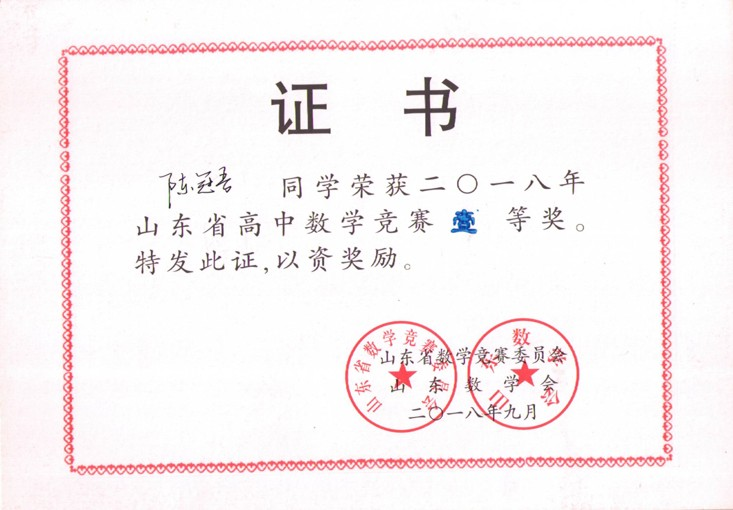 证书
陈冠吾 同学荣获二〇一八年
山东省高中数学竞赛 壹 等奖。
特发此证,以资奖励。
山东省数学竞赛委员会
山东数学会
二〇一八年九月
山东省数学竞赛委员会
山东数学会